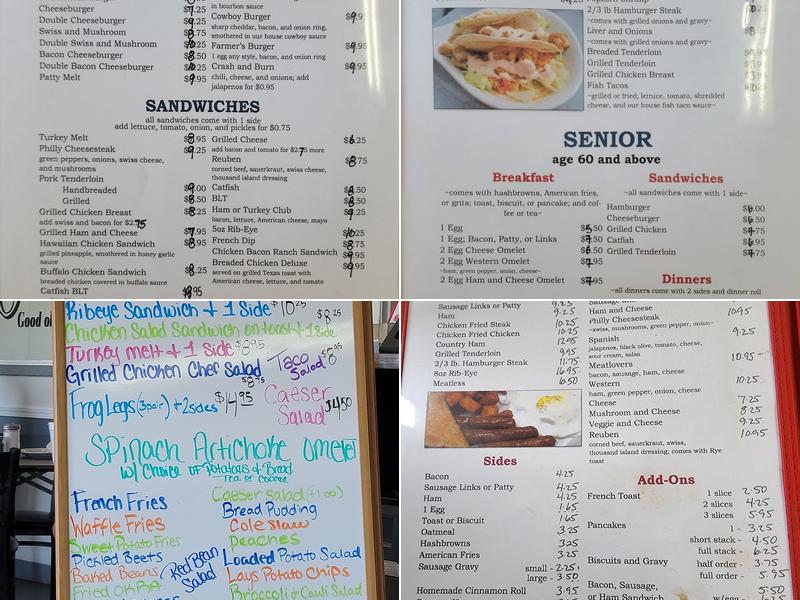 Cheeseburger $7.25
Double Cheeseburger $9.25
Swiss and Mushroom $8.75
Double Swiss and Mushroom $10.25
Bacon Cheeseburger $8.50
Double Bacon Cheeseburger $10.25
Patty Melt $9.95
in bourbon sauce
Cowboy Burger $9.95
sharp cheddar, bacon, and onion ring,
smothered in our house cowboy sauce
Farmer's Burger $9.95
1 egg any style, bacon, and onion ring
Crash and Burn $9.95
chili, cheese, and onions; add
jalapenos for $0.95
SANDWICHES
all sandwiches come with 1 side
add lettuce, tomato, onion, and pickles for $0.75
Turkey Melt $8.95
Philly Cheesesteak $9.25
green peppers, onions, swiss cheese,
and mushrooms
Pork Tenderloin
Handbreaded $9.00
Grilled $8.50
Grilled Chicken Breast $8.25
add swiss and bacon for $2.75
Grilled Ham and Cheese $7.95
Hawaiian Chicken Sandwich $8.95
grilled pineapple, smothered in honey garlic
sauce
Buffalo Chicken Sandwich $8.25
breaded chicken covered in buffalo sauce
Catfish BLT
Grilled Cheese $6.25
add bacon and tomato for $2.75 more
Reuben $8.75
corned beef, sauerkraut, swiss cheese,
thousand island dressing
Catfish
BLT
Ham or Turkey Club
bacon, lettuce, American cheese, mayo
5oz Rib-Eye $10.25
French Dip
Chicken Bacon Ranch Sandwich
Breaded Chicken Deluxe
served on grilled Texas toast with
American cheese, lettuce, and tomato
2/3 lb Hamburger Steak
~comes with grilled onions and gravy~
Liver and Onions
~comes with grilled onions and gravy~
Breaded Tenderloin
Grilled Tenderloin
Grilled Chicken Breast
Fish Tacos
~grilled or fried; lettuce, tomato, shredded
cheese, and our house fish taco sauce~
SENIOR
age 60 and above
Breakfast
~comes with hashbrowns, American fries,
or grits; toast, biscuit, or pancake; and cof-
fee or tea~
1 Egg $5.50
1 Egg; Bacon, Patty, or Links $7.50
2 Egg Cheese Omelet $6.50
2 Egg Western Omelet $7.95
~ham, green pepper, onion, cheese~
2 Egg Ham and Cheese Omelet $7.95
Sandwiches
~all sandwiches come with 1 side~
Hamburger $6.00
Cheeseburger $6.50
Grilled Chicken $7.75
Catfish $6.95
Grilled Tenderloin $7.75
Dinners
~all dinners come with 2 sides and dinner roll
Good
Ribeye Sandwich + 1 Side $10.25
$8.25
Chicken Salad Sandwich on toast + 1 Side
Turkey melt + 1 Side $8.95
Grilled Chicken Chef Salad $8.75
Taco Salad $8.95
Frog Legs (3 pair) + 2 sides $14.95
Caeser Salad $4.50
Spinach Artichoke Omelet
w/ Choice of Potatoes & Bread
Tea or Coffee
French Fries
Waffle Fries
Sweet Potato Fries
Pickled Beets
Baked Beans
Fried OKRA
Red Bean Salad
Caeser Salad (+1.00)
Bread Pudding
Cole Slaw
Peaches
Loaded Potato Salad
Lays Potato Chips
Broccoli & Cauli Salad
Sausage Links or Patty 9.25
Ham 9.25
Chicken Fried Steak 10.25
Chicken Fried Chicken 10.25
Country Ham 12.95
Grilled Tenderloin 9.95
2/3 lb. Hamburger Steak 11.75
8oz Rib-Eye 16.95
Meatless 6.50
Sides
Bacon 4.25
Sausage Links or Patty 4.25
Ham 4.25
1 Egg 1.65
Toast or Biscuit 1.65
Oatmeal 3.25
Hashbrowns 3.25
American Fries 3.25
Sausage Gravy small - 2.25
large - 3.50
Homemade Cinnamon Roll 3.95
Ham and Cheese 10.95
Philly Cheesesteak
~swiss, mushrooms, green pepper, onion~
Spanish 9.25
jalapenos, black olive, tomato, cheese,
sour cream, salsa
Meatlovers 10.95
bacon, sausage, ham, cheese
Western 10.25
ham, green pepper, onion, cheese
Cheese 7.25
Mushroom and Cheese 8.25
Veggie and Cheese 9.25
Reuben 10.95
corned beef, sauerkraut, swiss,
thousand island dressing; comes with Rye
toast
Add-Ons
French Toast 1 slice 2.50
2 slices 4.25
3 slices 5.95
Pancakes 1 - 3.25
short stack - 4.50
full stack - 6.25
Biscuits and Gravy half order - 3.75
full order - 5.95
Bacon, Sausage, 5.50
or Ham Sandwich w/egg